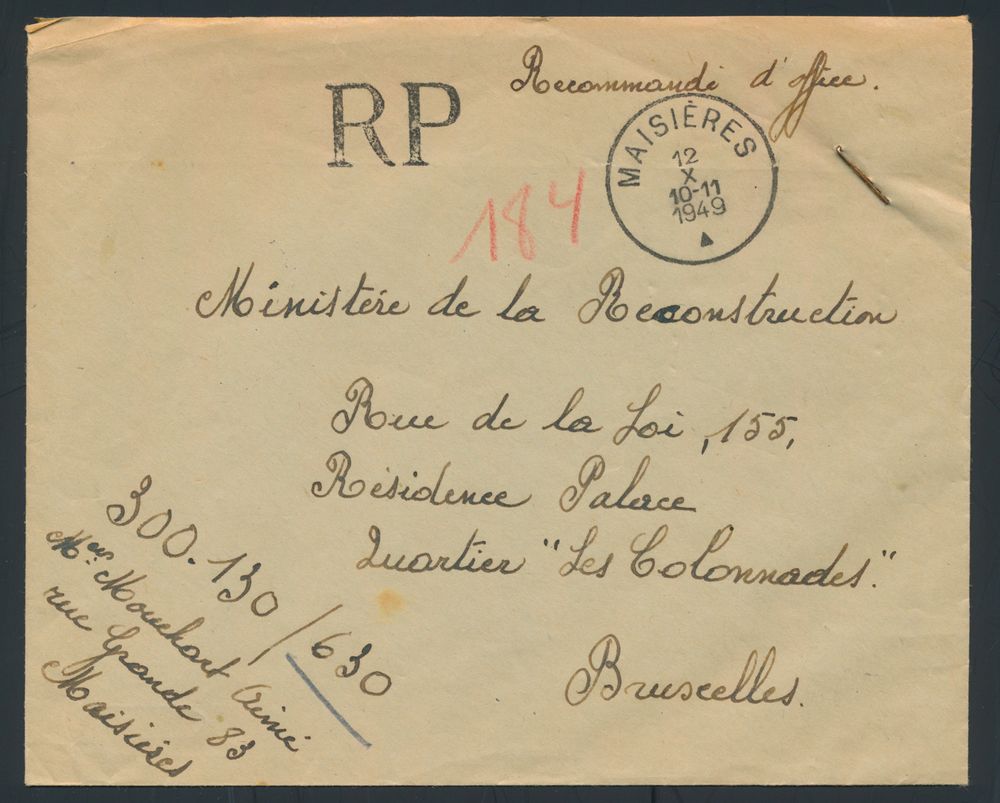 Recommandé d'office.
RP
MAISIÈRES
12
X
10-11
1949
184
Ministère de la Reconstruction
Rue de la Loi, 155,
Résidence Palace
Quartier "Les Colonnades."
Bruxelles.
300.130/630
Mouchart Aimé
rue Grande 83
Maisières